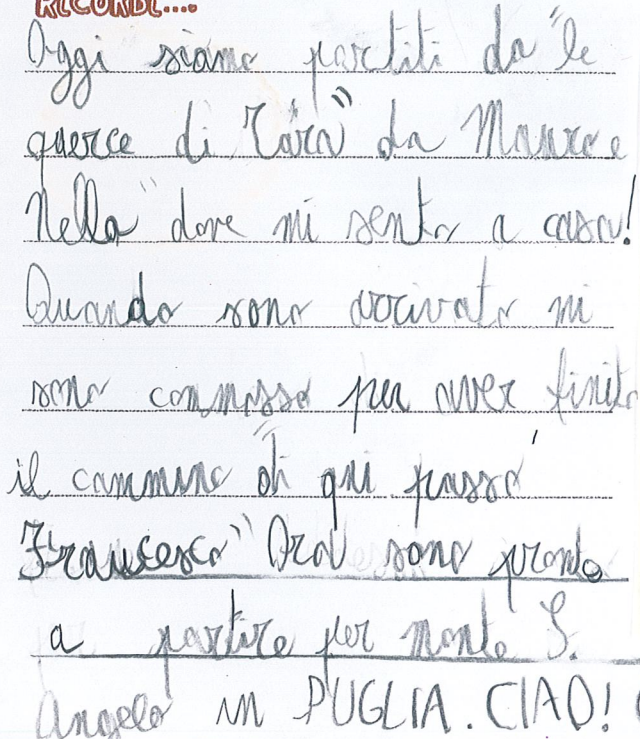 RICORDI....
Oggi siamo partiti da "le
querce di Tara" da Mauro e
Nella" dove mi sento a casa!
Quando sono arrivato mi
sono commosso per aver finito
il cammino "di qui passò
Francesco" Ora sono pronto
a partire per monte S.
Angelo in PUGLIA. CIAO!